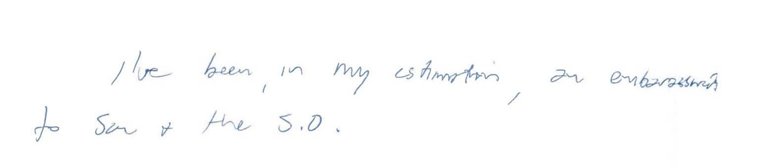 I've been, in my estimation, an embarassment
to Sou + the S.O.